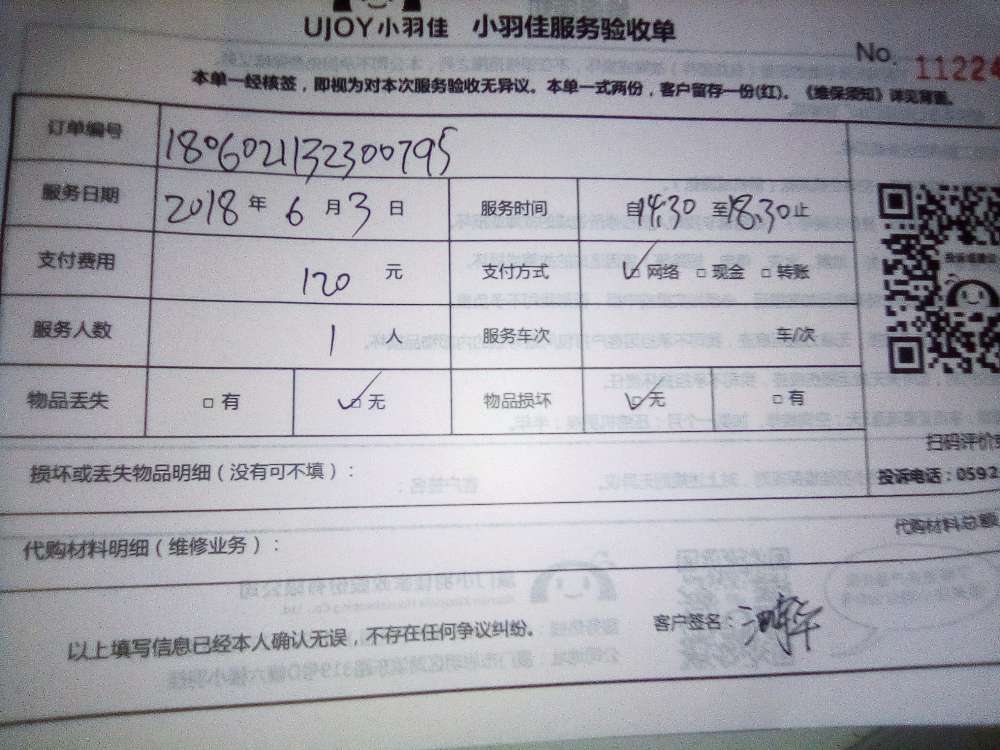 UJOY小羽佳 小羽佳服务验收单
No. 11224
本单一经核签，即视为对本次服务验收无异议。本单一式两份，客户留存一份(红)。《维保须知》详见背面。
订单编号 180602132300795
服务日期 2018年6月3日 服务时间 自14:30至18:30止
支付费用 120元 支付方式 网络 现金 转账
服务人数 1人 服务车次 车/次
物品丢失 有 无 物品损坏 无 有
扫码评价
损坏或丢失物品明细（没有可不填）：
投诉电话：0592
代购材料总额
代购材料明细（维修业务）：
以上填写信息已经本人确认无误，不存在任何争议纠纷。 客户签名：